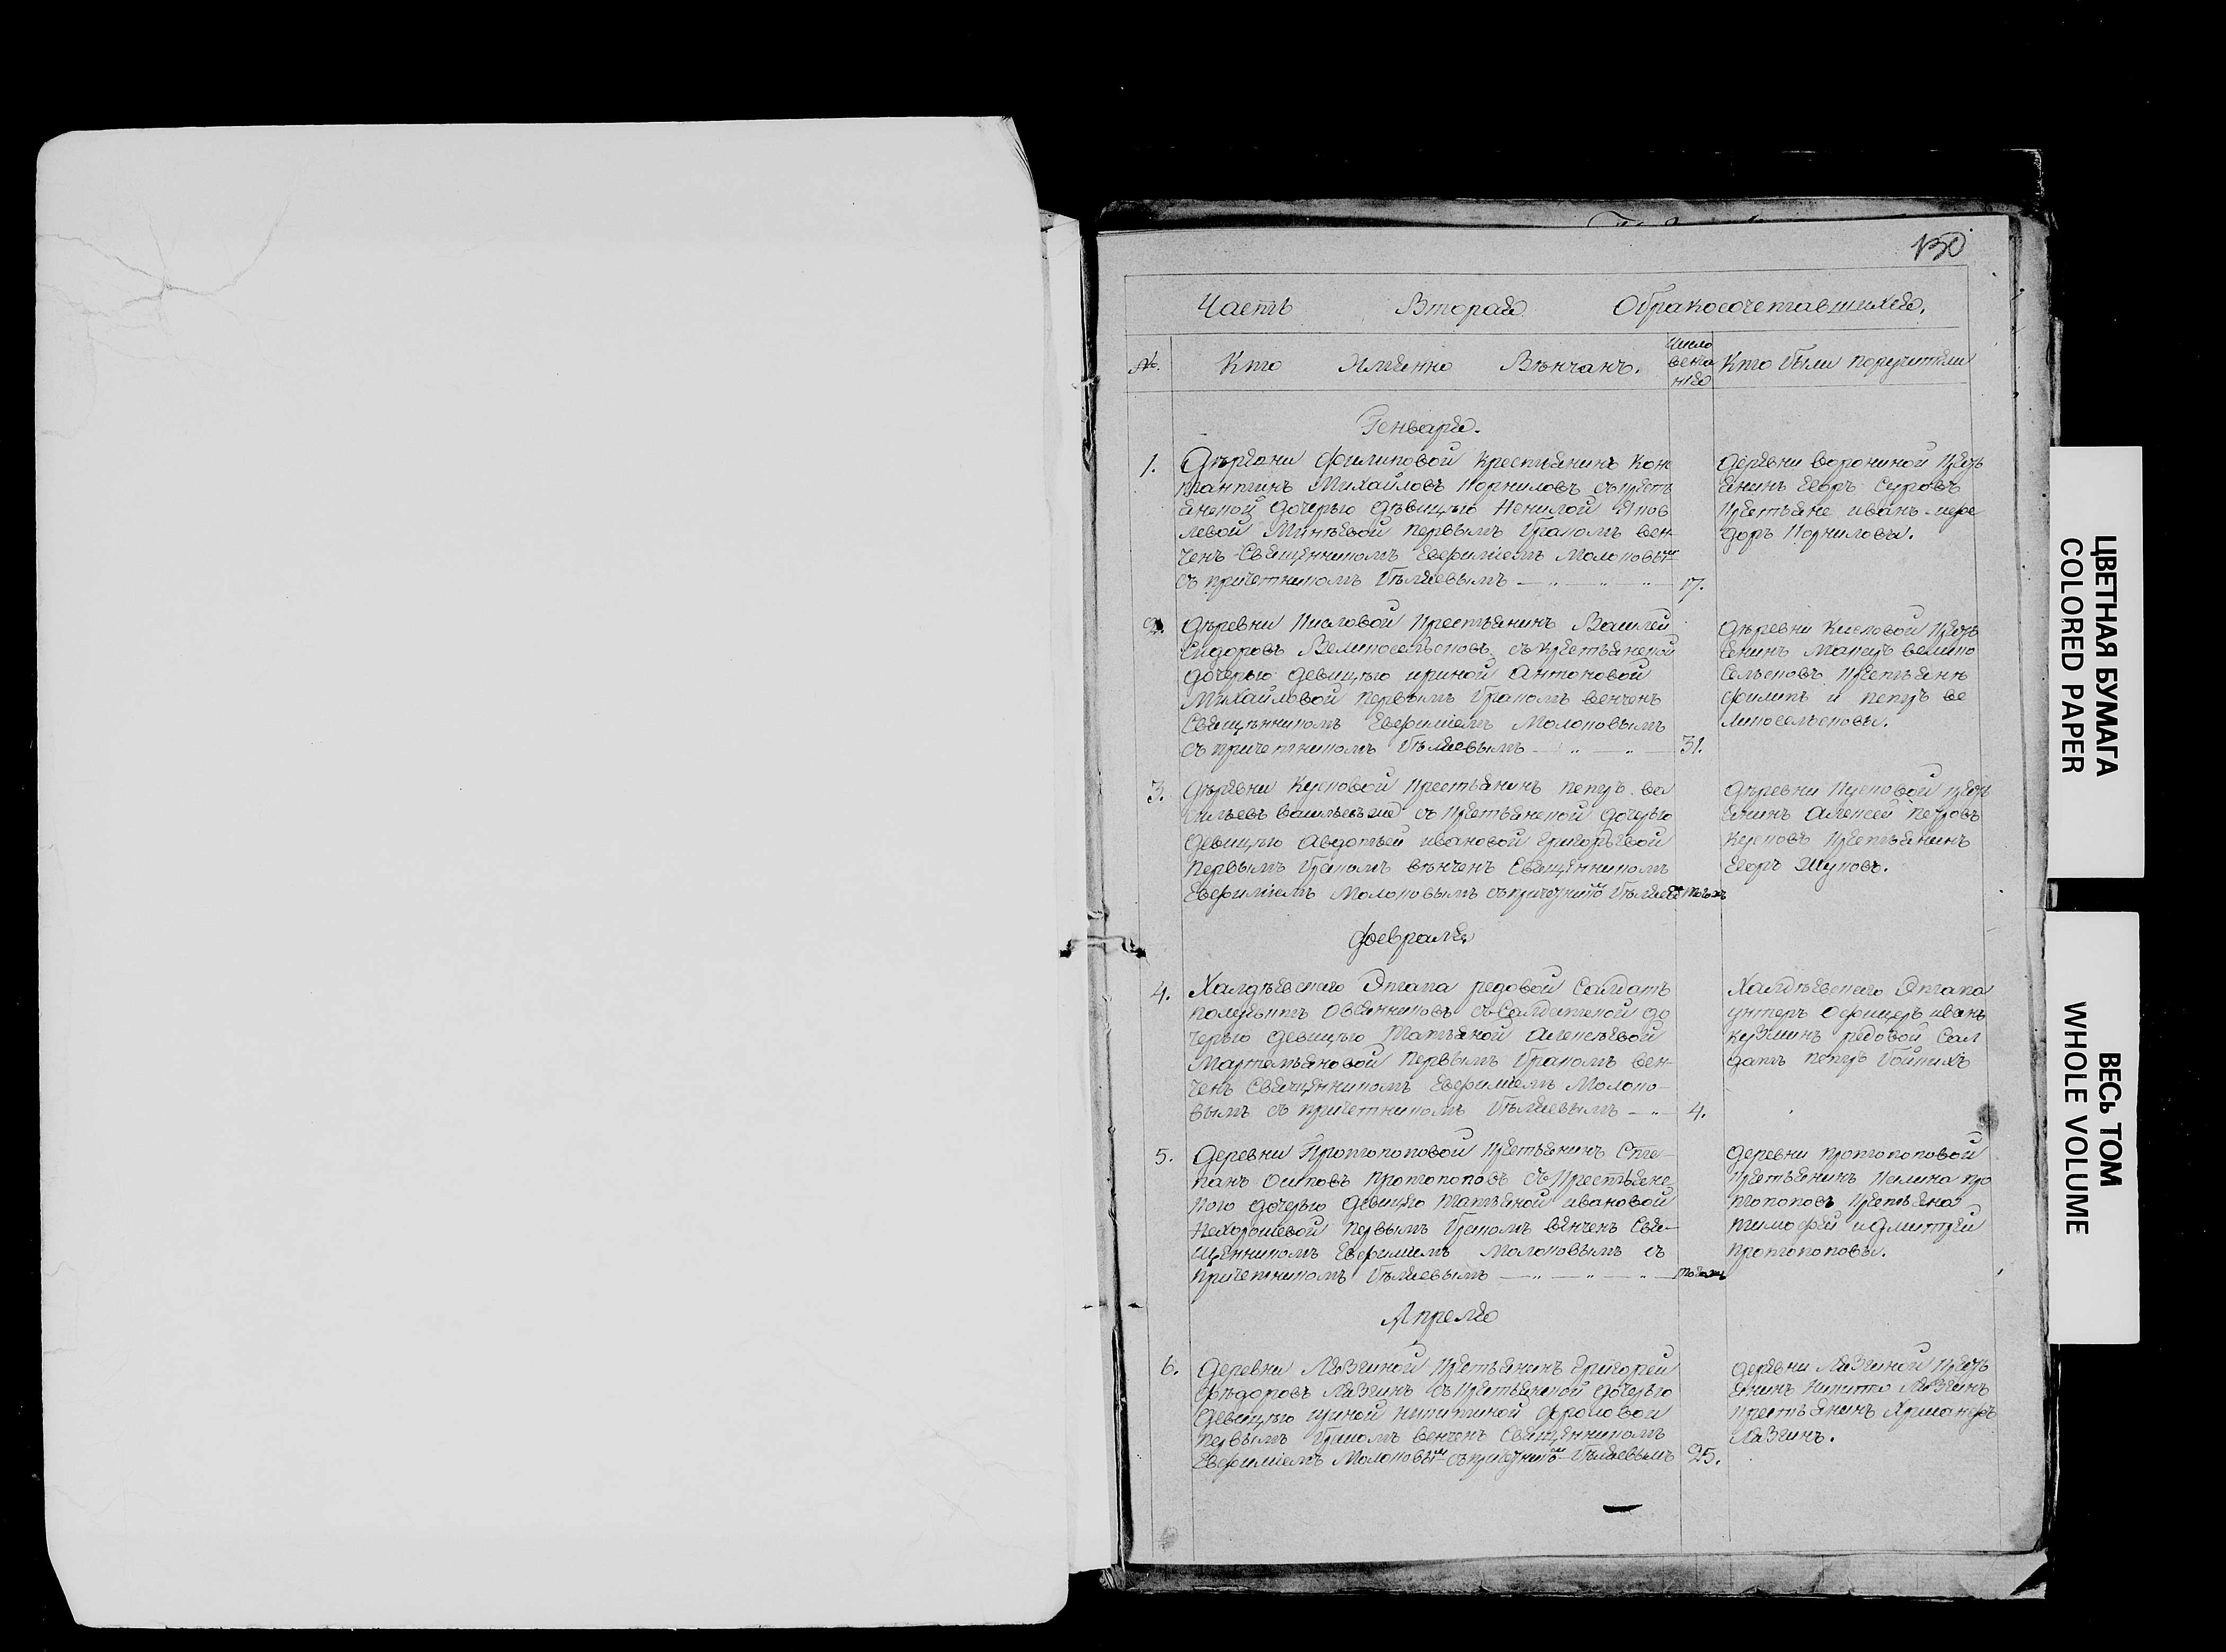 130
Часть Вторая Обракосочетавшихся.
№. Кто Имянно Вѣнчанъ. Число венча нія Кто были поручители
Генваря.
1. Дѣревни Филиповой крестьянинъ Кон
стантинъ Михайловъ Корниловъ съ крестъ
янской дочерью дѣвицею Ненилой Яков
левой Минѣевой первымъ бракомъ вен-
ченъ Священникомъ Евфиміемъ Молоковым
съ причетникомъ Бѣляевымъ 17.
деревни Ворониной крестъ
янинъ Егоръ Суровъ
крестьяне иванъ
доръ Корниловы.
2. Дѣревни Кисловой крестьянинъ Василей
Сидоровъ Великосельсковъ съ крестьянской
дочерью девицею ириной Антоновой
Михайловой первымъ бракомъ венченъ
Священникомъ Евфиміемъ Молоковымъ
съ причетникомъ Бѣляевымъ 31.
дѣревни Кисловой крестъ
янинъ Макаръ велико
сельсковъ крестьянѣ
филипъ и петръ ве
ликосельсковы.
3. Дѣревни Кусковой крестьянинъ петръ ва
сильевъ съ крестьянской дочерью
девицею авдотьей ивановой григорьевой
первымъ бракомъ вѣнченъ Священникомъ
Евфиміемъ Молоковымъ съ причетником Бѣляев тогож
дѣревни Кусковой крестъ
янинъ Алексей петровъ
Кусковъ крестьянинъ
Егоръ Жуковъ.
февраля
4. Халдѣевскаго Этапа редовой Салдатъ
Овсянниковъ съ Салдатской до
черью девицею Татьяной Алексѣевой
Мартемьяновой первымъ бракомъ вен-
ченъ Священникомъ Евфиміемъ Молоко-
вымъ съ причетникомъ Бѣляевымъ 4.
Халдѣевскаго Этапа
унтеръ офицеръ иванъ
кузминъ редовой Сал
датъ петръ
5. Деревни Протопоповой крестьянинъ Сте-
панъ Осиповъ Протопоповъ съ крестьянс
кою дочерью девицею татьяной ивановой
Нехорошевой первымъ бракомъ вѣнченъ Свя-
щенникомъ Евфиміемъ Молоковымъ съ
причетникомъ Бѣляевымъ тогож
деревни протопоповой
крестьянинъ про
топоповъ крестьяна
тимофей и дмитрей
протопоповы.
Апреля
6. Деревни Лязгиной крестьянинъ григорей
Фѣдоровъ Лязгинъ съ крестьянской дочерью
девицею ириной никитиной фроловой
первымъ бракомъ венченъ Священникомъ
Евфиміемъ Молоковым съ причетником Бѣляевымъ 25.
деревни Лязгиной крестъ
янинъ Никита Лязгинъ
крестьянинъ
Лязгинъ.
ЦВЕТНАЯ БУМАГА
COLORED PAPER
ВЕСЬ ТОМ
WHOLE VOLUME